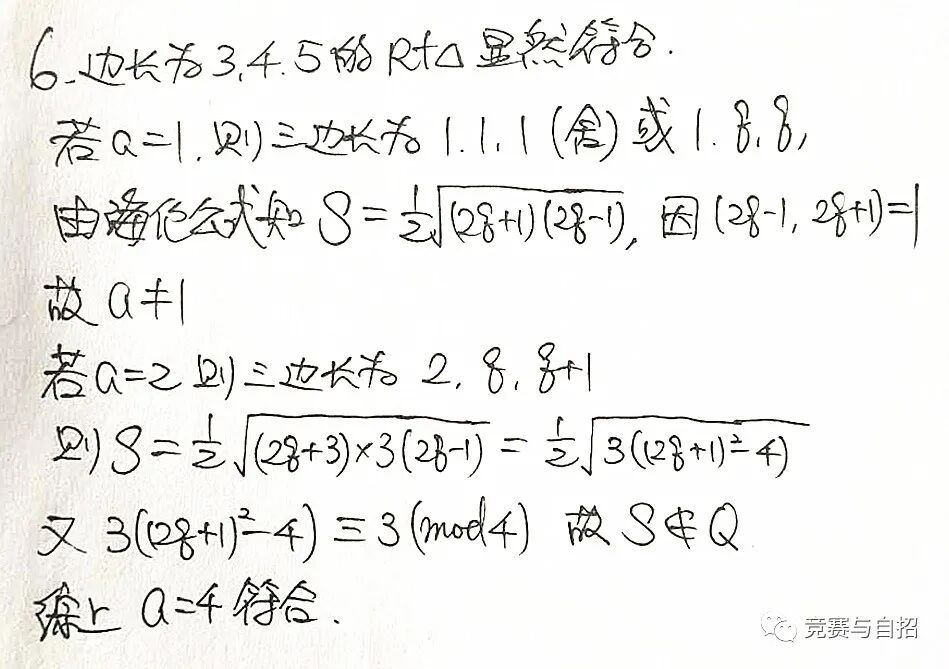 6. 边长为3.4.5的Rt△显然符合.
若a=1.则三边长为1.1.1(舍)或1.8.8,
由海伦公式知 S=½√(28+1)(28-1), 因(28-1, 28+1)=1
故a≠1
若a=2则三边长为 2, 8, 8+1
则S=½√(28+3)×3(28-1) = ½√3((28+1)²-4)
又 3((28+1)²-4)≡3(mod4) 故S∉Q
综上 a=4符合.
竞赛与自招